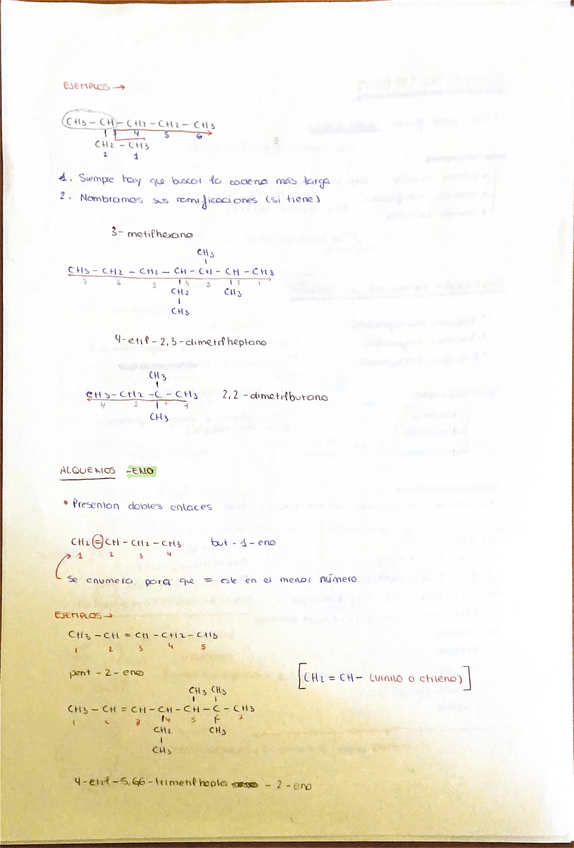 EJEMPLOS →
CH3 - CH - CH2 - CH2 - CH3
3 4 5 6
CH2 - CH3
2 1
1. Siempre hay que buscar la cadena más larga
2. Nombramos sus ramificaciones (si tiene)
3-metilhexano
CH3
CH3 - CH2 - CH2 - CH - CH - CH - CH3
7 6 5 4 3 2 1
CH2 CH3
CH3
4-etil-2,3-dimetilheptano
CH3
CH3 - CH2 - C - CH3 2,2-dimetilbutano
4 3 2 1
CH3
ALQUENOS -ENO
• Presentan dobles enlaces
CH2 = CH - CH2 - CH3 but-1-eno
1 2 3 4
se enumera para que = este en el menor número
EJEMPLOS →
CH3 - CH = CH - CH2 - CH3
1 2 3 4 5
pent-2-eno [CH2 = CH- (vinilo o etileno)]
CH3 CH3
CH3 - CH = CH - CH - CH - C - CH3
1 2 3 4 5 6 7
CH2 CH3
CH3
4-etil-5,66-trimetilhepta -2-eno